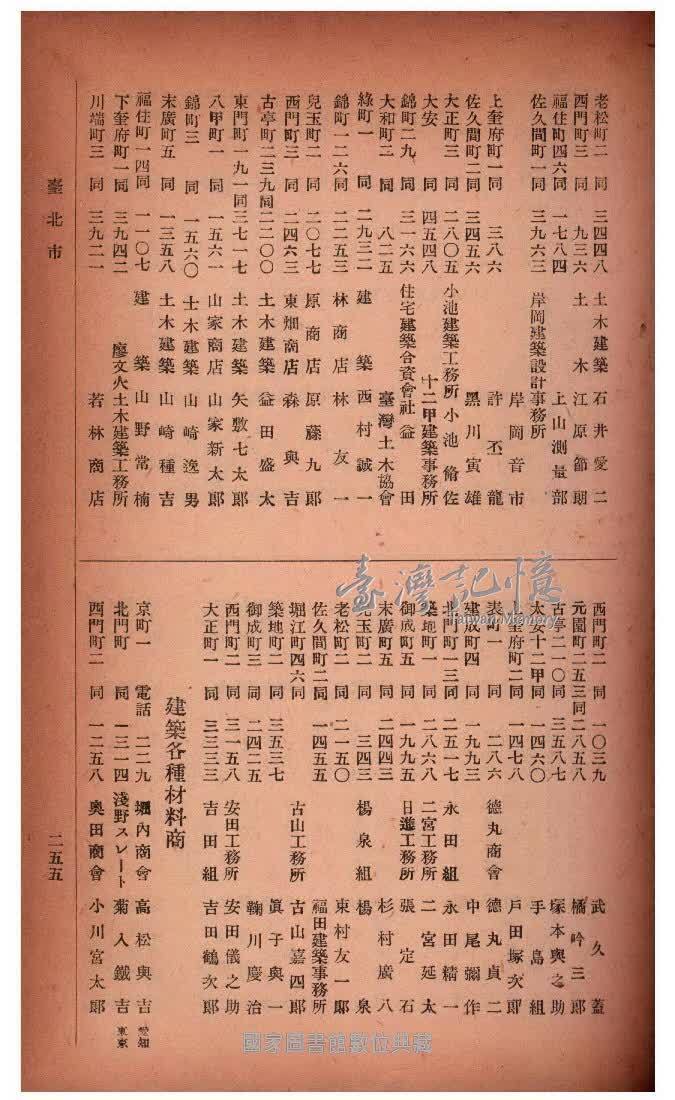 老松町二 同 三四四八 土木建築 石井愛二
西門町三 同 九三六 土木 江原節朗
福住町四六同 一七八四 上山測量部
佐久間町一同 三九六三 岸岡建築設計事務所
岸岡音市
上奎府町一同 三八六 許丕龍
佐久間町二同 三四五六 黑川寅雄
大正町三 同 二八〇五 小池建築工務所 小池脩佐
大安 同 四五四八 十二甲建築事務所
錦町二九 同 三一六六 住宅建築合資會社 益田
大和町二 同 八二五 臺灣土木協會
綠町一 同 二九三二 建築 西村誠一
錦町一二六同 二二五三 林商店 林友一
兒玉町二 同 二〇七七 原商店 原藤九郎
西門町三 同 二四六三 東畑商店 森興吉
古亭町二三九同 二二〇〇 土木建築 益田盛太
東門町一九一同 三七一七 土木建築 矢敷七太郎
八甲町一 同 一五六一 山家商店 山家新太郎
錦町三 同 一五六〇 土木建築 山崎逸男
末廣町五 同 一三五八 土木建築 山崎種吉
福住町一四同 一一〇七 建築 山野常楠
下奎府町一同 三九四二 廖文火土木建築工務所
川端町三 同 三九二一 若林商店
臺北市
西門町二 同 一〇三九 武久蓋
元園町二五三同 二八五八 橋吟三郎
古亭二一〇同 三五八七 塚本與之助
大安十二甲同 一四六〇 手島組
上奎府町二同 一四七八 戶田塚次郎
表町一 同 二八六 德丸商會 德丸貞二
建成町四 同 一九九三 中尾彌作
北門町一三同 二五一七 永田組 永田精一
築地町一 同 二八六八 二宮工務所 二宮延太
御成町五 同 一九九五 日進工務所 張定石
末廣町五 同 二四四三 杉村廣八
兒玉町二 同 三四三 楊泉組 楊泉
老松町二 同 二一五〇 東村友一郎
佐久間町二同 一四五五 福田建築事務所
堀江町四六同 古山工務所 古山嘉四郎
築地町二 同 三五三七 眞子與一
御成町三 同 二四二五 鞠川慶治
西門町二 同 三一五八 安田工務所 安田儀之助
大正町一 同 三三三三 吉田組 吉田鶴次郎
建築各種材料商
京町一 電話 二二九 堀內商會 高松與吉 愛知
北門町 同 一三一四 淺野スレート 菊入鐵吉 東京
西門町二 同 一二五八 奧田商會 小川宮太郎
二五五
臺灣記憶
Taiwan Memory
國家圖書館數位典藏